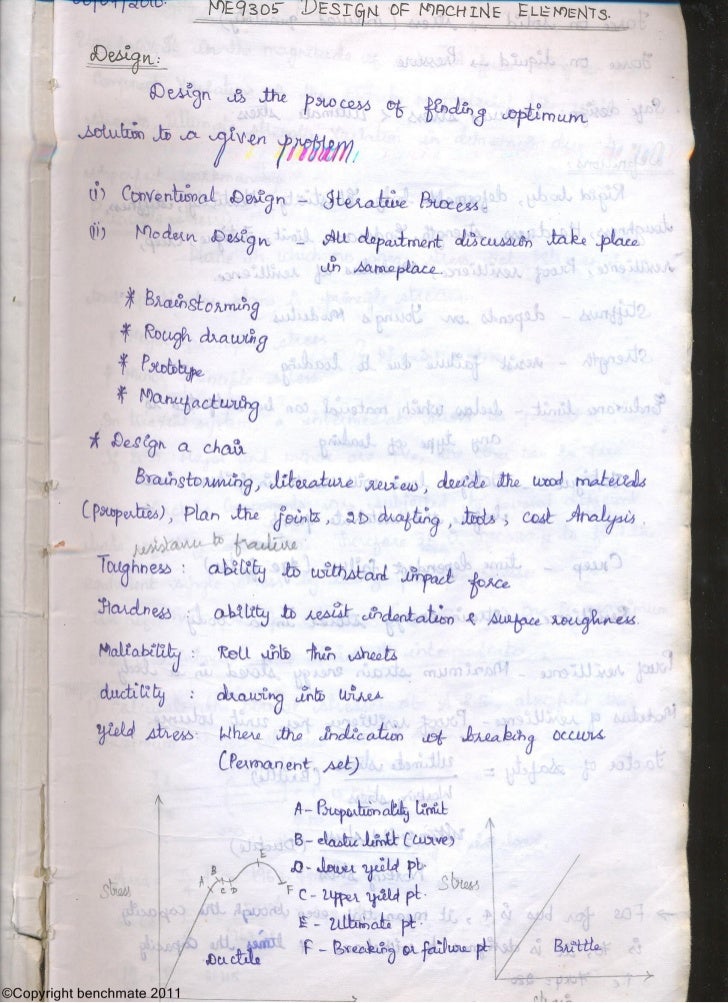 ME9305 DESIGN OF MACHINE ELEMENTS.
Design:
Design is the process of finding optimum
solution to a given problem.
(i) Conventional Design - Iterative Process.
(ii) Modern Design - All department discussion take place
in same place.
* Brainstorming
* Rough drawing
* Prototype
* Manufacturing
* Design a chair
Brainstorming, literature review, decide the wood materials
(properties), Plan the joints, 2D drafting, tools, cost Analysis.
resistance to fracture
Toughness : ability to withstand impact force
Hardness : ability to resist indentation & surface roughness
Maliability : Roll into thin sheets
ductility : drawing into wires
yield stress: Where the indication of breaking occurs
(Permanent set)
A - Proportionality limit
B - elastic limit (curve)
D - lower yield pt.
C - Upper yield pt.
E - Ultimate pt.
F - Breaking or failure pt
Stress
A B C D E F
Ductile
Stress
Brittle
©Copyright benchmate 2011